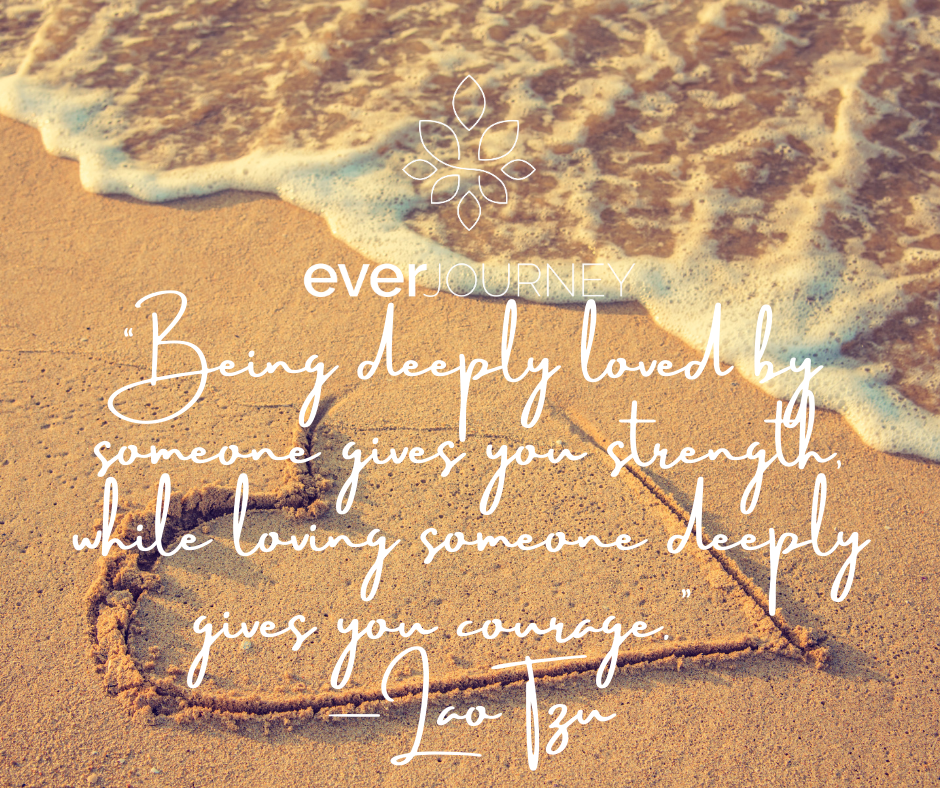 everJOURNEY
“Being deeply loved by
someone gives you strength,
while loving someone deeply
gives you courage.”
—Lao Tzu